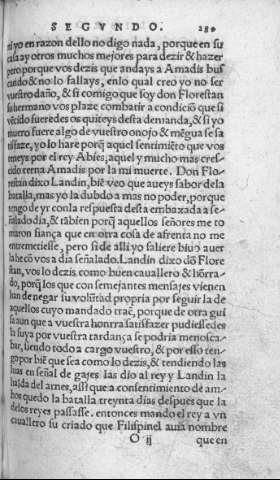 SEGVNDO. 289
ni yo en razon dello no digo nada, porque en su
casa ay otros muchos mejores para dezir & hazer
pero porque vos dezis que andays a Amadis bus
cando & no lo fallays, enlo qual creo yo no ser
vuestro daño, & si comigo que soy don Florestan
su hermano vos plaze combatir a condiciõ que si
vécido fueredes os quiteys desta demanda, & si yo
muerto fuere algo de vuestro onojo & mẽgua se sa
tissaze, yo lo hare porq̃ aquel sentimiẽto que vos
teneys por el rey Abies, aquel y mucho mas cres
cido terna Amadis por la mi muerte. Don Flo-
restan dixo Landin, biẽ veo que aueys sabor dela
batalla, mas yo la dubdo a mas no poder, porque
tengo de yr conla respuesta desta embaxada a se-
ñalado dia, & tãbien porq̃ aquellos señores me to
maron fiança que en otra cosa de afrenta no me
entremetiesse, pero si de alli yo saliere biuo auer
la he cõ vos a dia señalado. Landin dixo dõ Flore
stan, vos lo dezis como buen cauallero & hõrra-
do, porq̃ los que con semejantes mensajes vienen
han de negar su volũtad propria por seguir la de
aquellos cuyo mandado traẽ, porque de otra gui
sa aun que a vuestra honrra satisfazer pudiessedes
la suya por vuestra tardança se podria menosca-
bar, siendo todo a cargo vuestro, & por esso ten-
go por biẽ que sea como lo dezis, & tendiendo las
luas en señal de gajes las dio al rey y Landin la
halda del arnes, assi q̃ a consentimiento de am-
bos quedo la batalla treynta dias despues que la
delos reyes passasse. entonces mando el rey a vn
cauallero su criado que Filispinel auia nombre
O ij que en